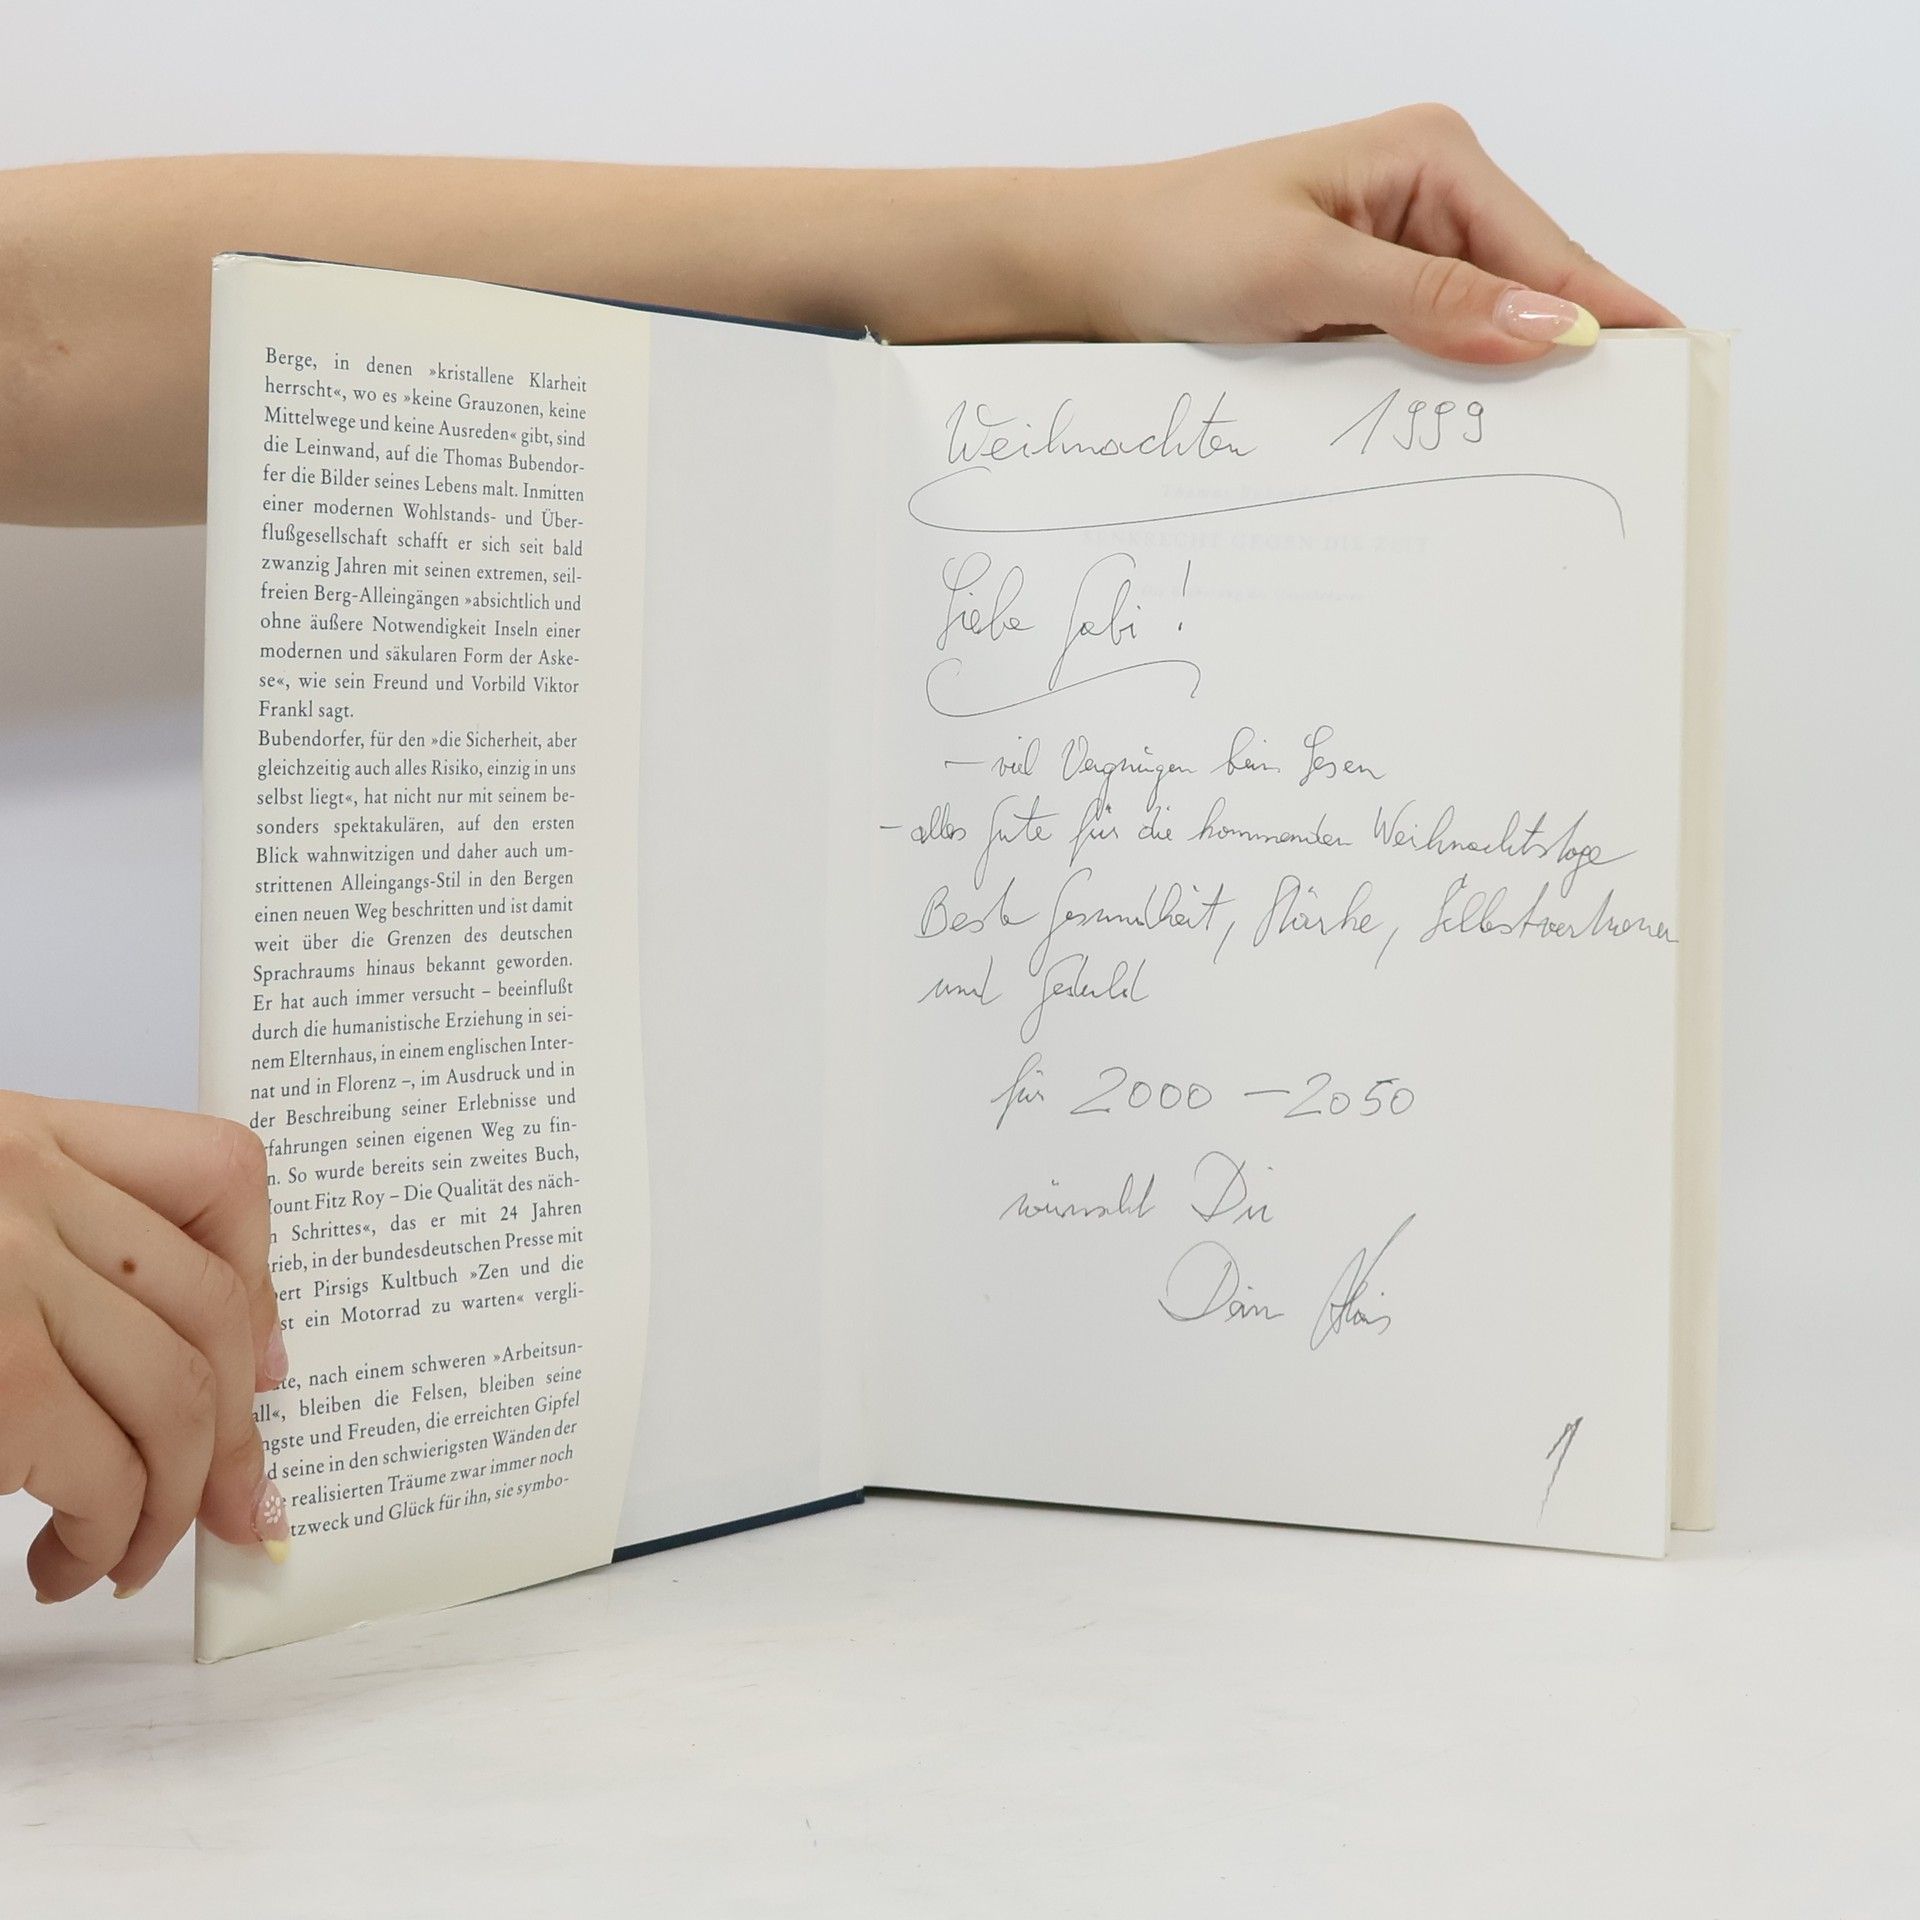 Berge, in denen »kristallene Klarheit
herrscht«, wo es »keine Grauzonen, keine
Mittelwege und keine Ausreden« gibt, sind
die Leinwand, auf die Thomas Bubendor-
fer die Bilder seines Lebens malt. Inmitten
einer modernen Wohlstands- und Über-
flußgesellschaft schafft er sich seit bald
zwanzig Jahren mit seinen extremen, seil-
freien Berg-Alleingängen »absichtlich und
ohne äußere Notwendigkeit Inseln einer
modernen und säkularen Form der Aske-
se«, wie sein Freund und Vorbild Viktor
Frankl sagt.
Bubendorfer, für den »die Sicherheit, aber
gleichzeitig auch alles Risiko, einzig in uns
selbst liegt«, hat nicht nur mit seinem be-
sonders spektakulären, auf den ersten
Blick wahnwitzigen und daher auch um-
strittenen Alleingangs-Stil in den Bergen
einen neuen Weg beschritten und ist damit
weit über die Grenzen des deutschen
Sprachraums hinaus bekannt geworden.
Er hat auch immer versucht – beeinflußt
durch die humanistische Erziehung in sei-
nem Elternhaus, in einem englischen Inter-
nat und in Florenz –, im Ausdruck und in
der Beschreibung seiner Erlebnisse und
fahrungen seinen eigenen Weg zu fin-
n. So wurde bereits sein zweites Buch,
ount Fitz Roy – Die Qualität des näch-
n Schrittes«, das er mit 24 Jahren
rieb, in der bundesdeutschen Presse mit
bert Pirsigs Kultbuch »Zen und die
st ein Motorrad zu warten« vergli-
te, nach einem schweren »Arbeitsun-
all«, bleiben die Felsen, bleiben seine
ngste und Freuden, die erreichten Gipfel
d seine in den schwierigsten Wänden der
e realisierten Träume zwar immer noch
tzweck und Glück für ihn, sie symbo-
Weihnachten 1999
SENKRECHT GEGEN DIE ZEIT
Liebe Gabi !
– viel Vergnügen beim Lesen
– alles Gute für die kommenden Weihnachtstage
Beste Gesundheit, Stärke, Selbstvertrauen
und Geduld
für 2000 – 2050
wünscht Dir
Dein Alois
1